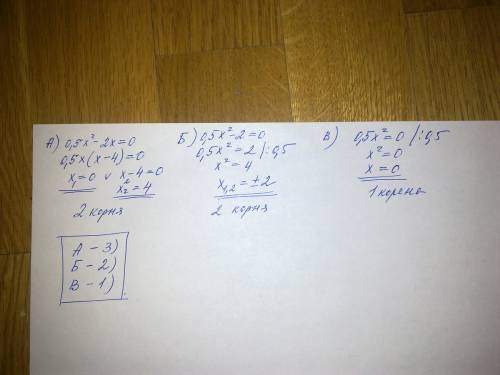 А) 0,5x²-2x=0
0,5x(x-4)=0
x₁=0 v x-4=0
x₂=4
2 корня
Б) 0,5x²-2=0
0,5x²=2 /:0,5
x²=4
x₁,₂=±2
2 корня
В) 0,5x²=0 /:0,5
x²=0
x=0
1 корень
А - 3)
Б - 2)
В - 1)